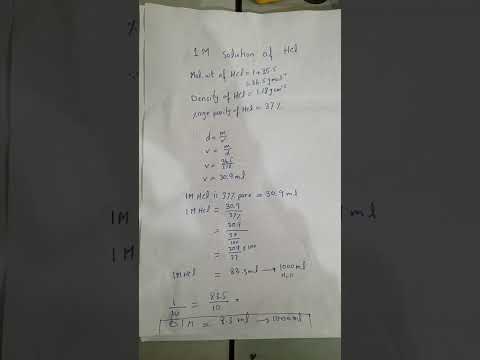 1 M Solution of Hcl
Mol. wt of Hcl = 1+35.5
= 36.5 g mol⁻¹
Density of Hcl = 1.18 g cm⁻³
%age purity of Hcl = 37 %
d = m/v
v = m/d
v = 36.5/1.18
v = 30.9 ml
1M Hcl is 37% pure = 30.9 ml
1M Hcl = 30.9/37%
= 30.9/37/100
= 30.9 x 100/37
1M Hcl = 83.5ml → 1000ml
H₂O
1/10 = 83.5/10
M = 8.3 ml → 1000ml